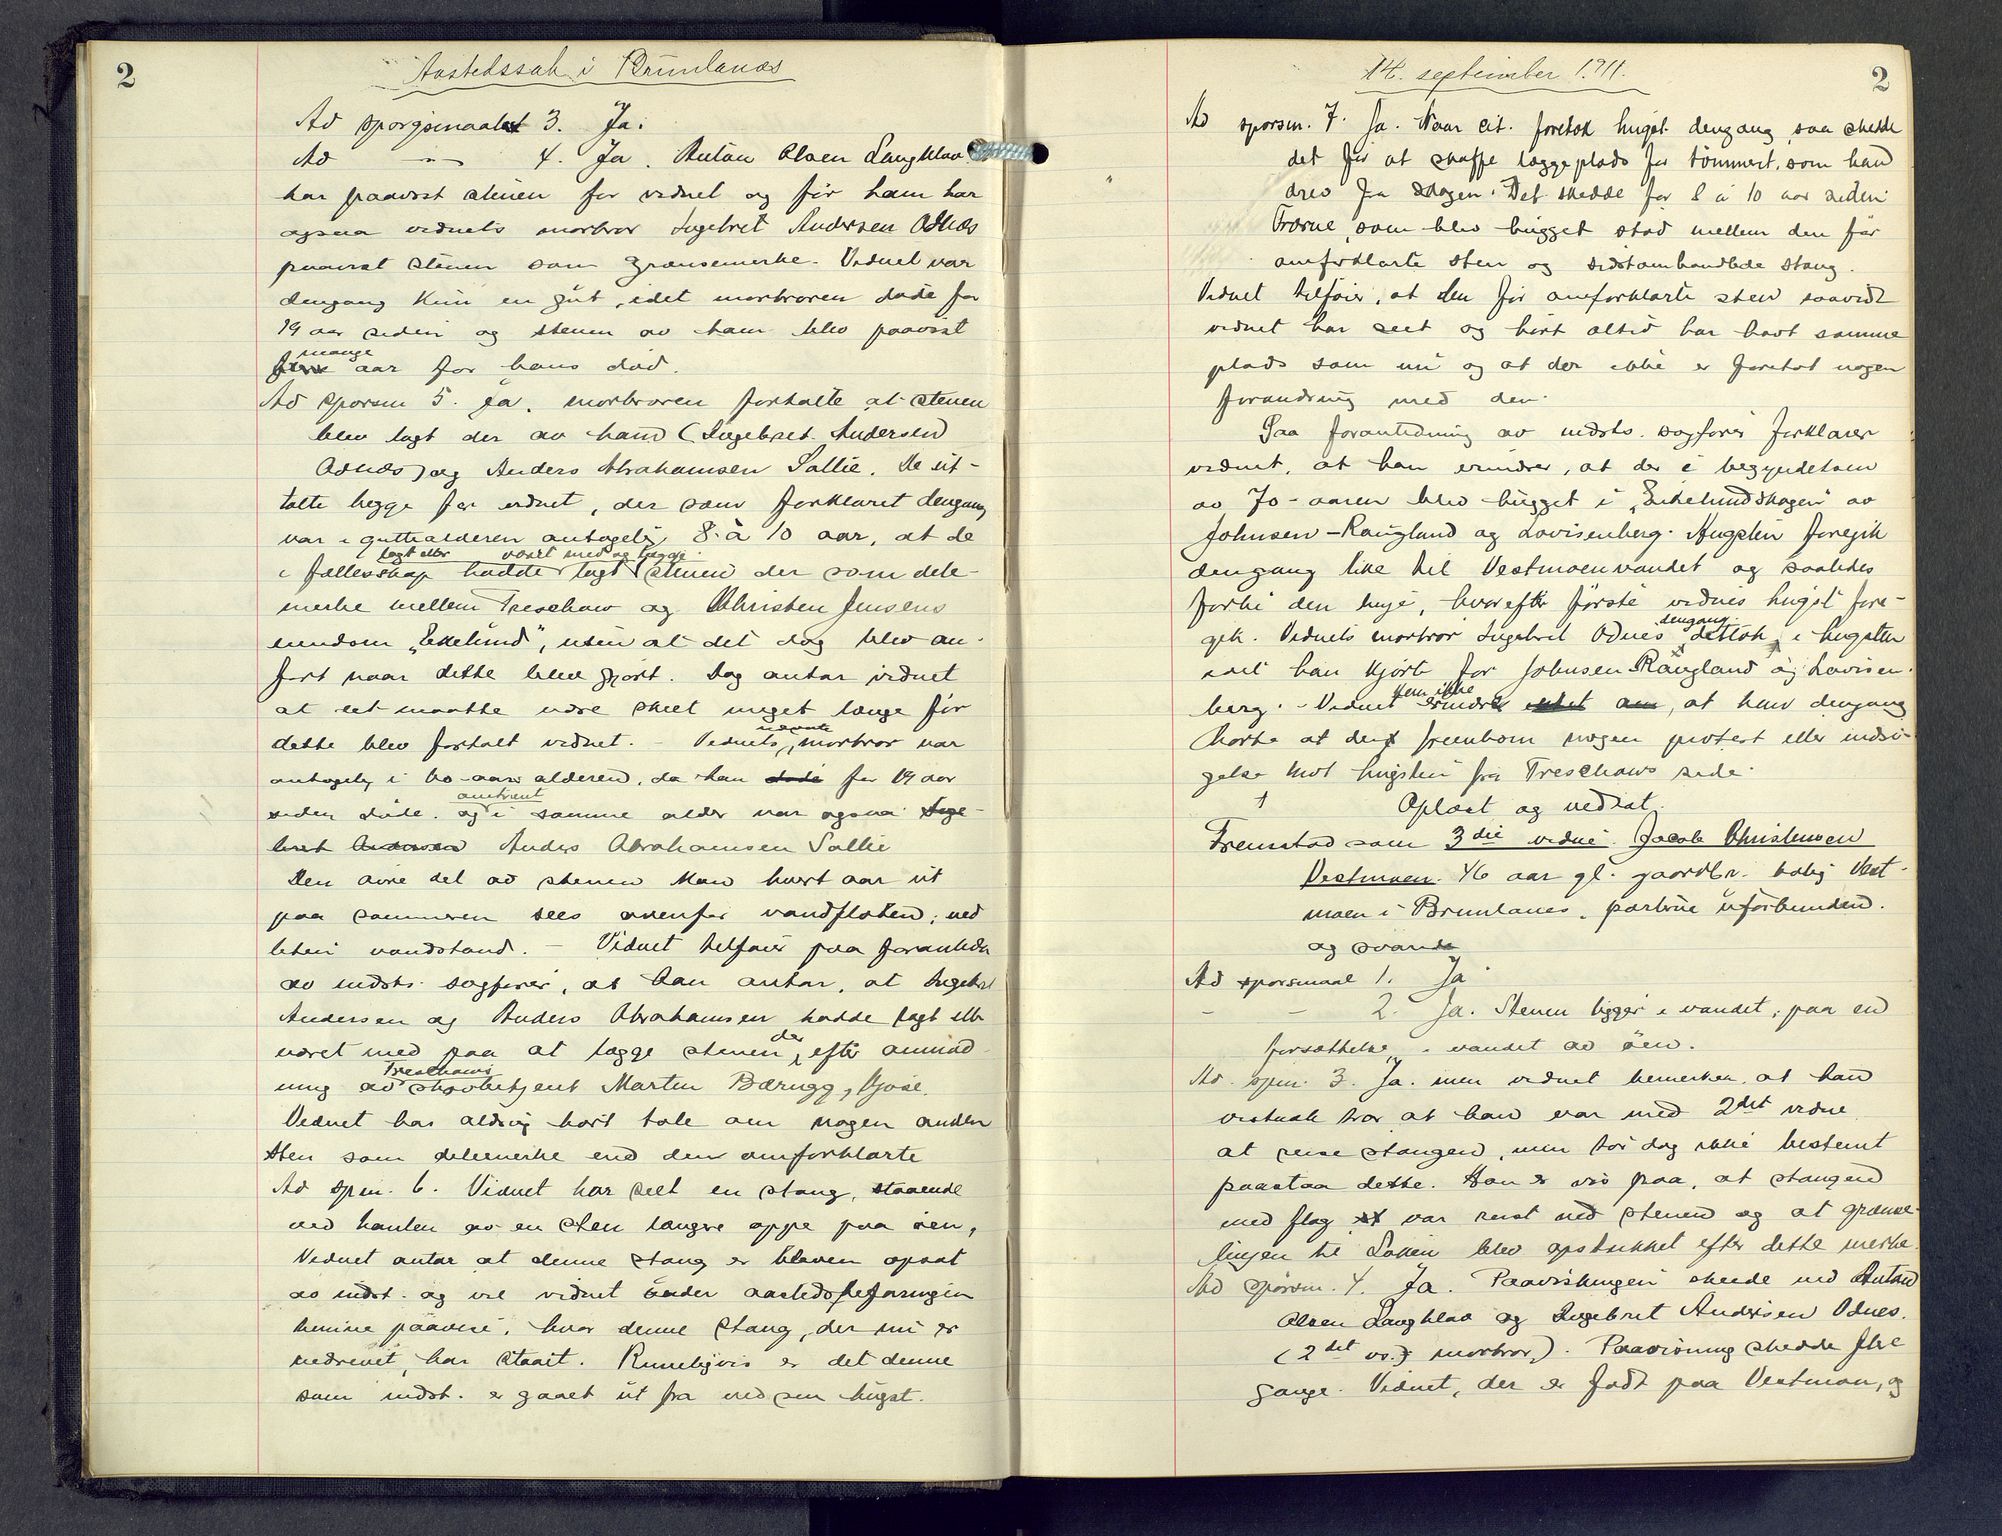 2
Aastedssak i Brunlanæs
Ad spørgsmaalet 3. Ja.
Ad —"— 4. Ja. Anton Olsen Langklav
har paavist stenen for vidnet og før ham har
ogsaa vidnets morbror Ingebret Andersen Odnæs
paavist stenen som grænsemerke. Vidnet var
dengang kun en gut, idet morbroren døde for
19 aar siden og stenen av ham blev paavist
mange
aar før hans død.
Ad spørsm 5. Ja. morbroren fortalte at stenen
blev lagt der av ham (Ingebret Andersen
Odnæs) og Anders Abrahamsen Sallie. De ut-
talte begge for vidnet, der som forklaret dengang
var i guttealderen antagelig 8 à 10 aar, at de
lagt eller været med og lægge
i fællesskap hadde lagt stenen der som dele-
merke mellem Treschow og Christen Jensens
eiendom "Ekelund", uten at det dog blev an-
ført naar dette blev gjort. Dog antar vidnet
at det maatte være skeet meget længe før
nævnte
dette blev fortalt vidnet. – Vidnets morbror var
antagelig i 60-aars alderen, da han døde for 19 aar
omtrent
siden døde. og i samme alder var ogsaa Inge-
bret Andersen Anders Abrahamsen Sallie
Den øvre del av stenen kan hvert aar ut
paa sommeren sees ovenfor vandflaten, ved
liten vandstand. – Vidnet tilføier paa foranledn
av indsts. sagfører, at han antar, at Ingebret
Andersen og Anders Abrahamsen hadde lagt elle
der
været med paa at lægge stenen, efter anmod
Treschows
ning av skovbetjent Marten Bærugg, Kjose.
Vidnet har aldrig hørt tale om nogen anden
Sten som delemerke end den omforklarte
Ad spm. 6. Vidnet har seet en stang, staaende
ved kanten av en sten længre oppe paa øen,
Vidnet antar at denne stang er bleven opsat
av indst. og vil vidnet under aastedsbefaringen
kunne paavise, hvor denne stang, der nu er
nedrevet, har staait. Rimeligvis er det denne
som indst. er gaaet ut fra ved sin hugst.
14. september 1911.
2
Ad spørsm. 7. Ja. Naar cit. foretok hugst dengang, saa skedde
det for at skaffe læggeplads for tømmert, som han
drev fra skogen. Det skedde for 8 à 10 aar siden
Trærne, som blev hugget stod mellem den før
omforklarte sten og sidstomhandlede stang.
Vidnet tilføier, at den før omforklarte sten saavidt
vidnet har seet og hørt altid har havt samme
plads som nu og at der ikke er foretat nogen
forandring med den.
Paa foranledning av indsts. sagfører forklarer
vidnet, at han erindrer, at der i begyndelsen
av 70-aaren blev hugget i "Eikelundskogen" av
Johnsen-Raugland og Lovisenberg. Hugsten foregik
dengang like til Vestmoenvandet og saaledes
forbi den linje, hvorefter første vidnes hugst fore-
dengang
gik. Vidnets morbror Ingebret Odnes deltok i hugsten
idet han kjørte for Johnsen Raugland og Lovisen-
kan ikke
berg. – Vidnet erindre, at han dengang
hørte at der fremkom nogen protest eller indsi-
gelse mot hugsten fra Treschows side.
Oplæst og vedtat.
Fremstod som 3die vidne. Jacob Christensen
Vestmoen. 46 aar gl. gaardbr. bolig Vest-
moen i Brunlanes, parterne uforbunden.
og svarede
Ad spørsmaal 1. Ja
– – 2. Ja. Stenen ligger i vandet, paa en
forsættelse i vandet av øen.
Ad. spm. 3. Ja. men vidnet bemerker, at han
vistnok tror at han var med 2det vidne
at reise stangen, men tør dog ikke bestemt
paastaa dette. Han er vis paa, at stangen
med flag var reist ved stenen og at grænse-
linjen til Løken blev opstukket efter dette merke.
Ad spørsm. 4. Ja. Paavisningen skeede ved Anton
Olsen Langklav og Ingebret Andersen Odnes.
(2det v.s morbror). Paavisning skedde flere
gange. Vidnet, der er født paa Vestmoen, og